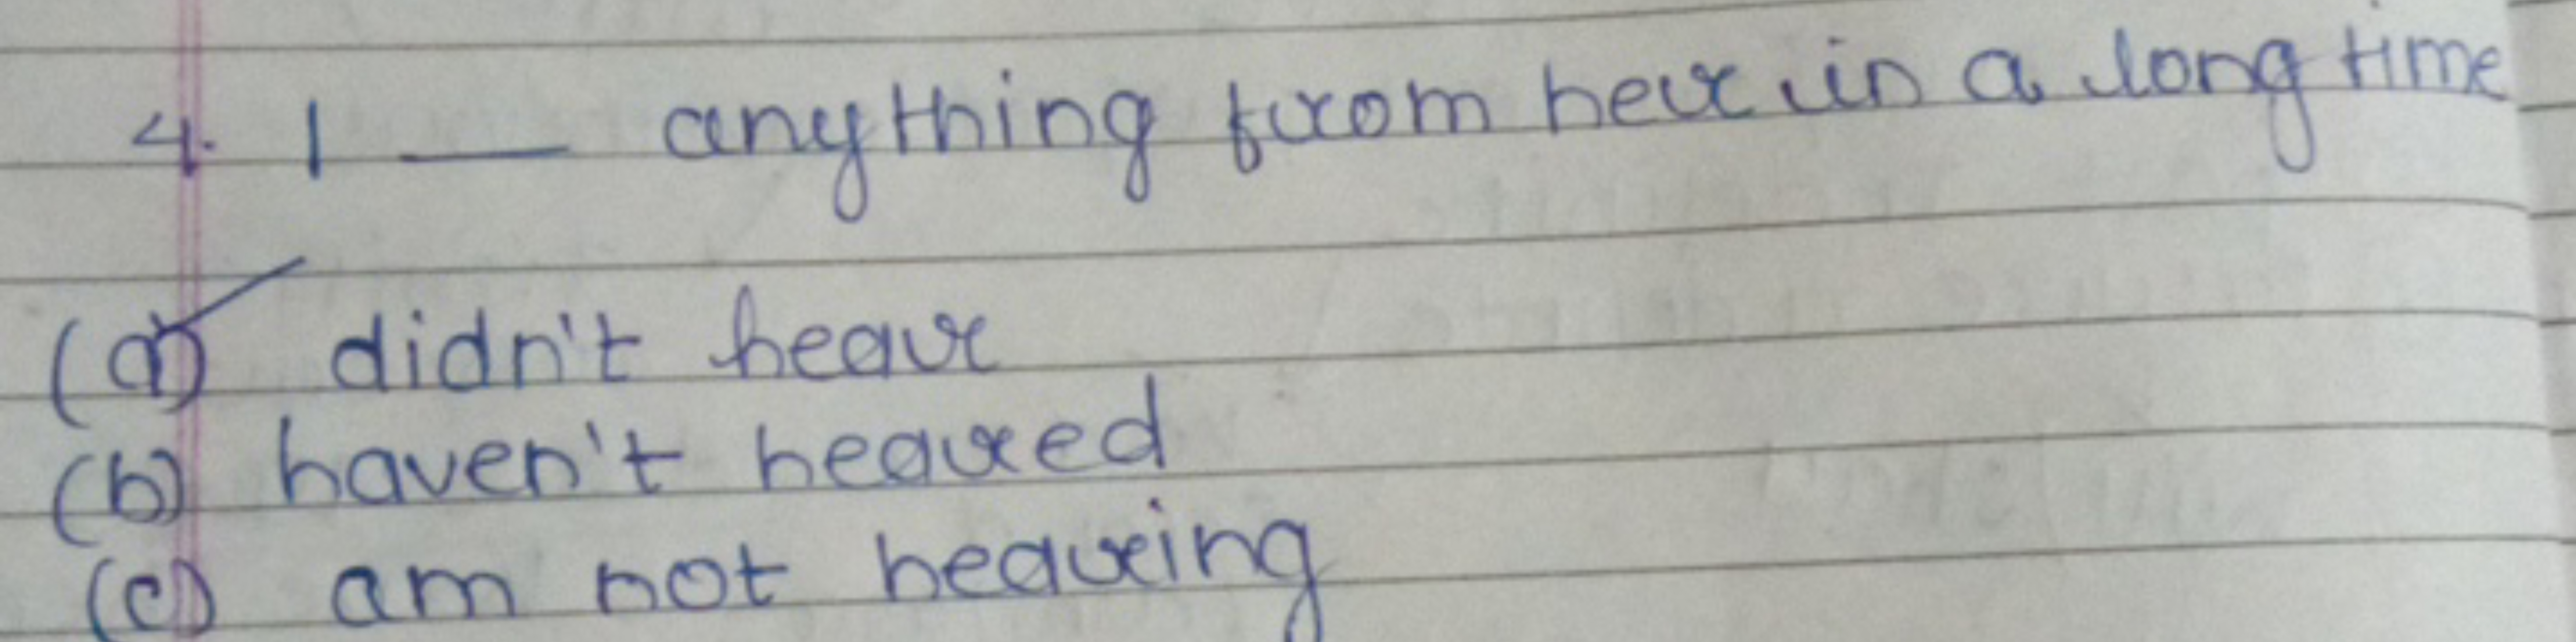 4. I __ anything from her in a long time
(a) didn't hear
(b) haven't heared
(c) am not hearing